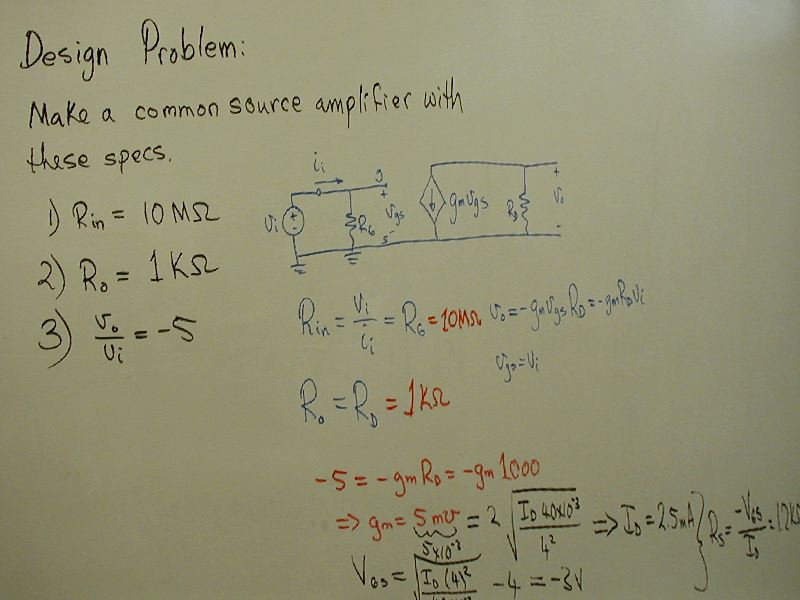 Design Problem:
Make a common source amplifier with
these specs.
1) Rin = 10 MΩ
2) Ro = 1KΩ
3) vo/vi = -5
ii
g
+
vi
+
-
RG
vgs
s
-
gmvgs
RD
+
vo
-
Rin = vi/ii = RG = 10MΩ
vo = -gmvgsRD = -gmRDvi
vgs = vi
Ro = RD = 1KΩ
-5 = -gmRD = -gm1000
=> gm = 5mv = 2 √(ID 40x10^-3 / 4^2) => ID = 2.5mA } Rs = -VGS/ID =
5x10^-3
VGS = √(ID (4)^2 / -4 = -3V